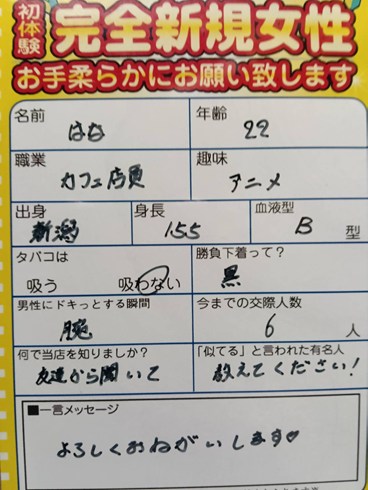 初体験
完全新規女性
お手柔らかにお願い致します
名前
はな
年齢
22
職業
カフェ店員
趣味
アニメ
出身
新潟
身長
155
血液型
B 型
タバコは
吸う 吸わない
勝負下着って?
黒
男性にドキっとする瞬間
腕
今までの交際人数
6 人
何で当店を知りましか?
友達から聞いて
「似てる」と言われた有名人
教えてください!
■一言メッセージ
よろしくおねがいします♡